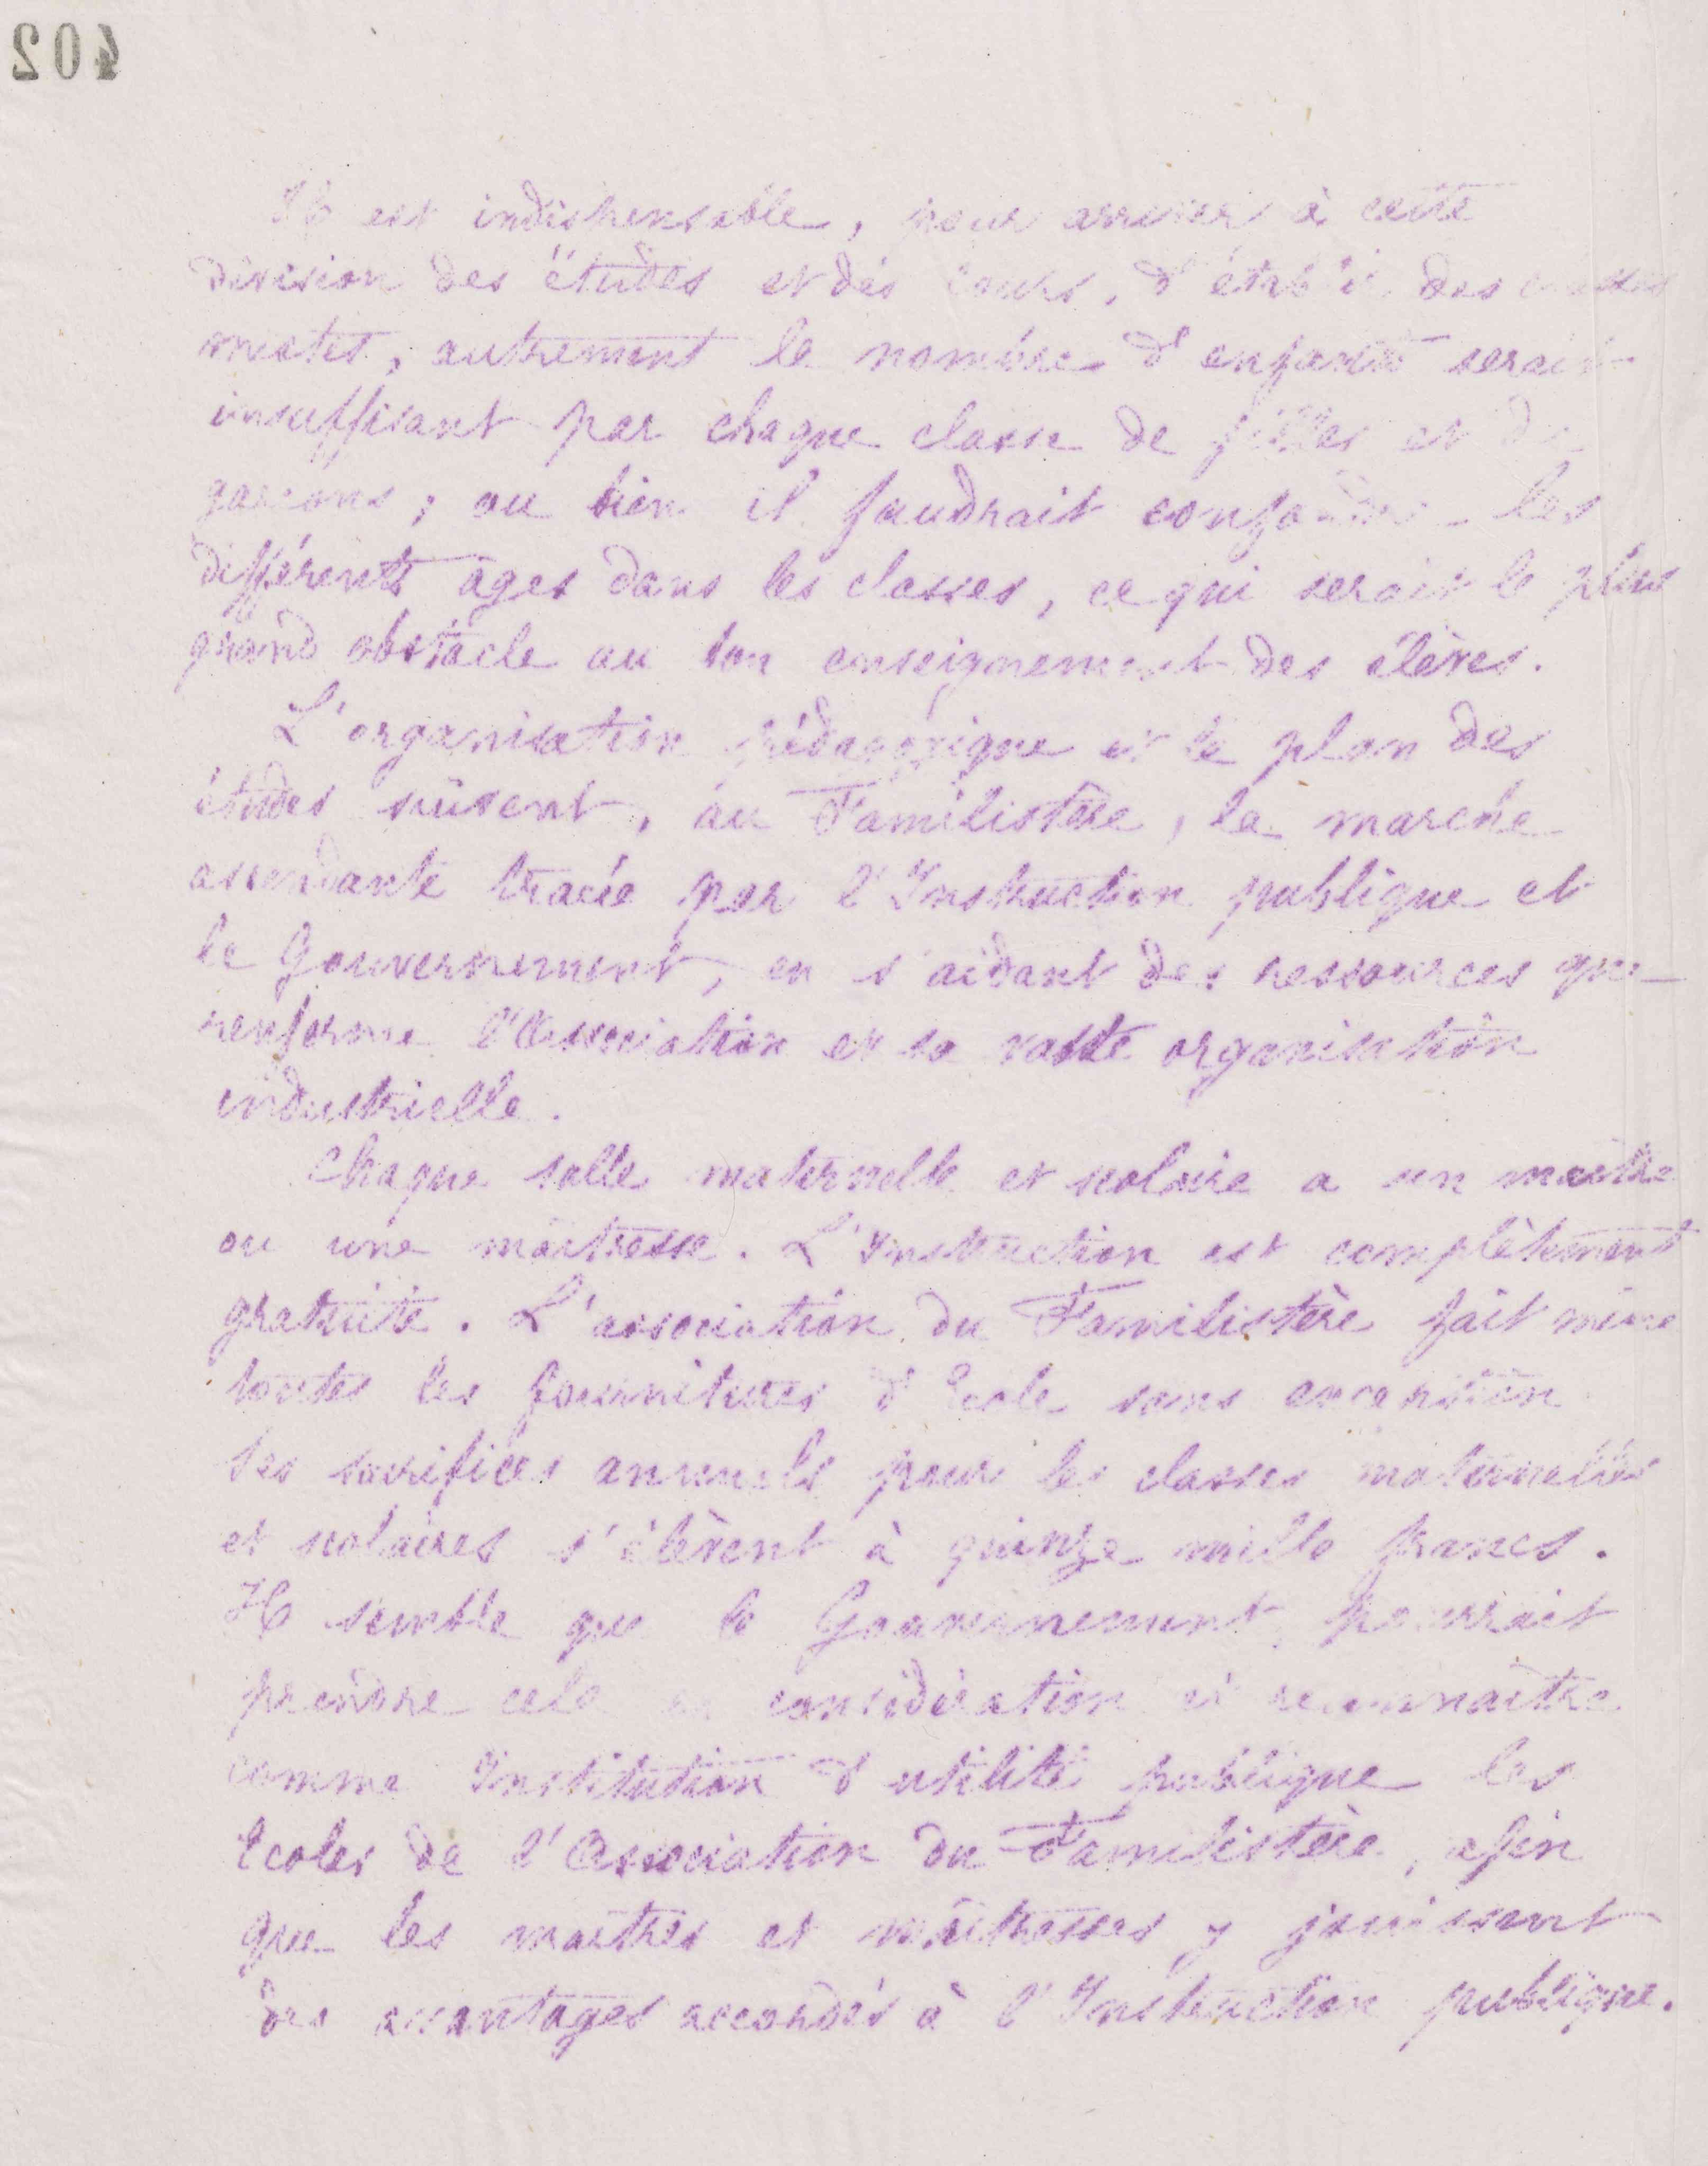 402
Il est indispensable, pour arriver à cette
division des études et des cours, d'établir des classes
mixtes, autrement le nombre d'enfants serait
insuffisant par chaque classe de filles et de
garçons ; ou bien il faudrait confondre les
différents âges dans les classes, ce qui serait le plus
grand obstacle au bon enseignement des élèves.
L'organisation pédagogique et le plan des
études suivent, au Familistère, la marche
ascendante tracée par l'Instruction publique et
le Gouvernement, en s'aidant des ressources que
renferme l'Association et sa vaste organisation
industrielle.
Chaque salle maternelle et scolaire a un maître
ou une maîtresse. L'Instruction est complètement
gratuite. L'association du Familistère fait même
toutes les fournitures d'Ecole sans exception
Ses sacrifices annuels pour les classes maternelles
et scolaires s'élèvent à quinze mille francs.
Il semble que le Gouvernement pourrait
prendre cela en considération et reconnaître
comme Institution d'utilité publique les
Ecoles de l'Association du Familistère, afin
que les maîtres et maîtresses y jouissent
des avantages accordés à l'Instruction publique.